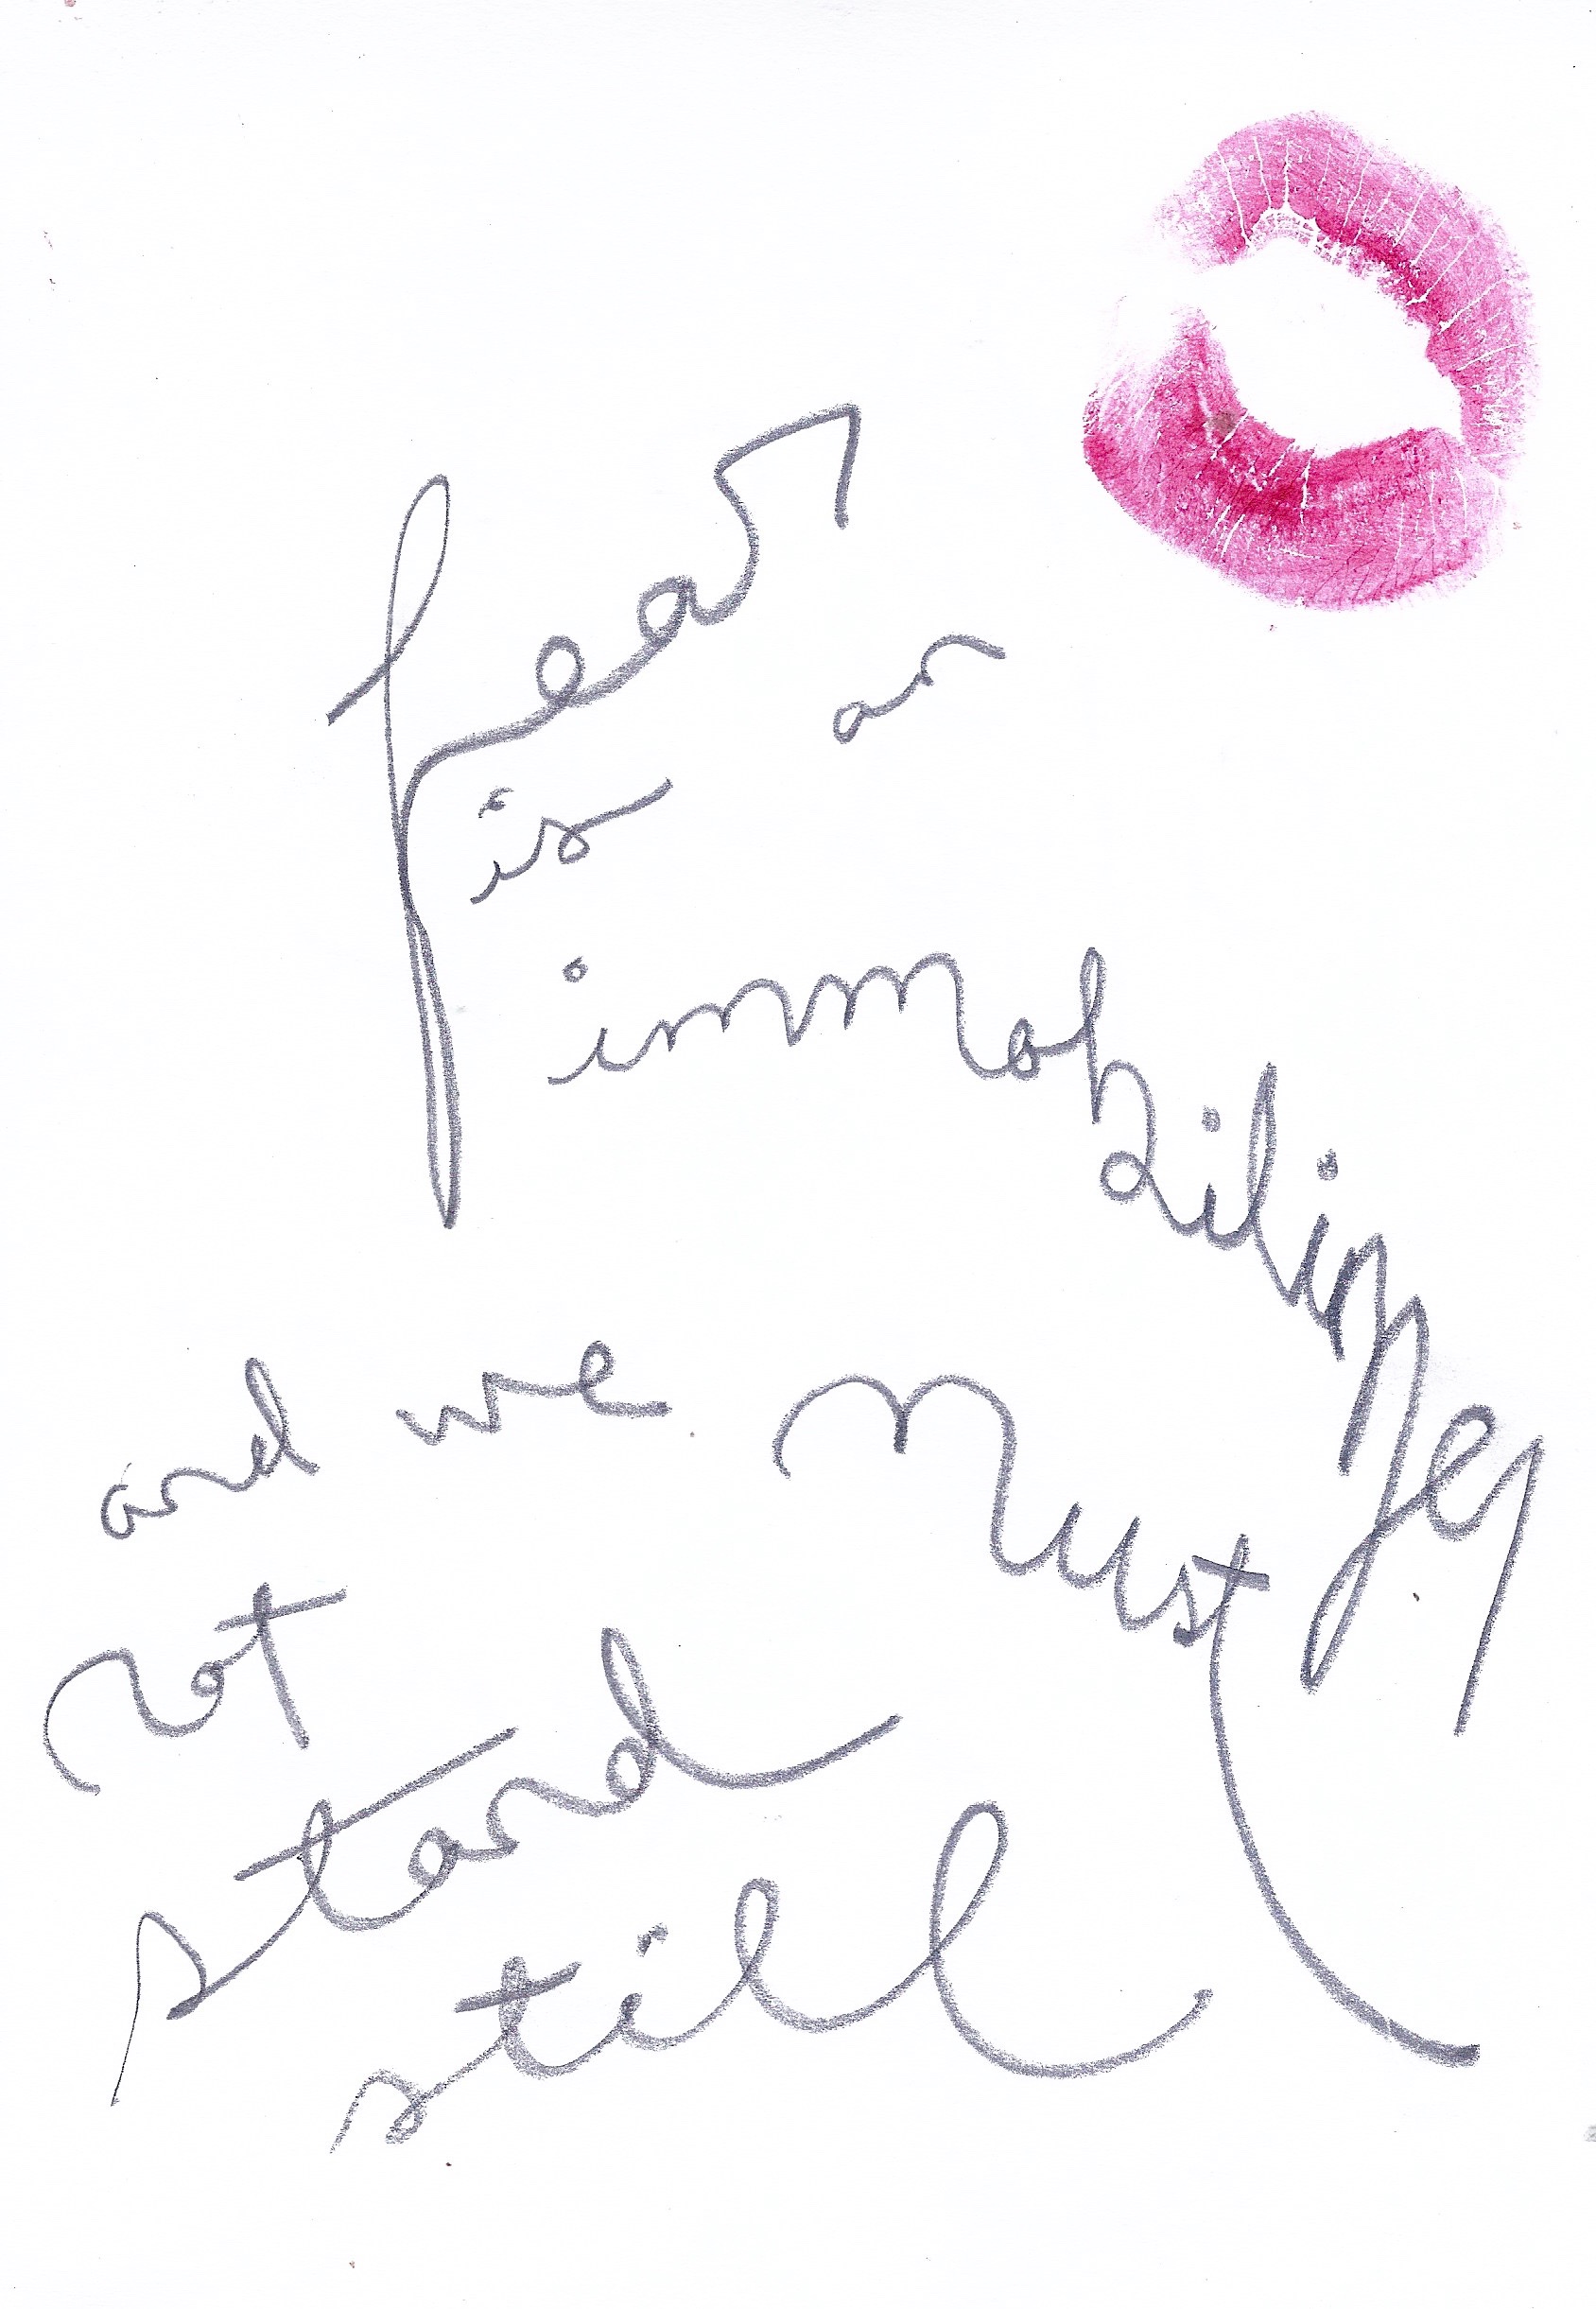 fear
is an
immobilizer
and we must
not
stand
still